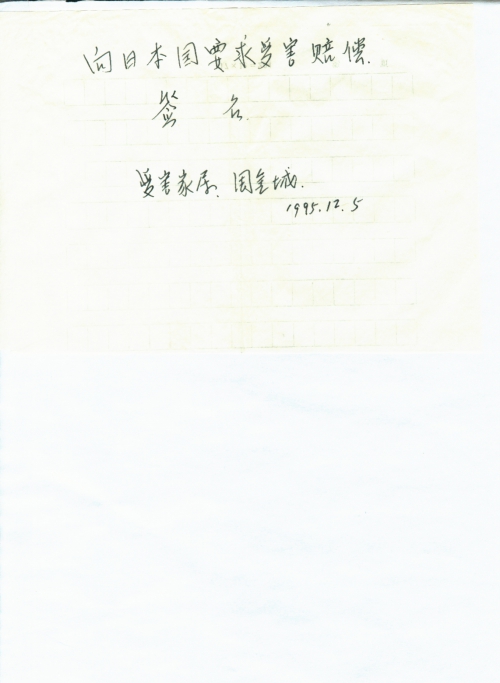 向日本国要求受害赔偿.
签 名.
受害家属. 周金城.
1995.12.5